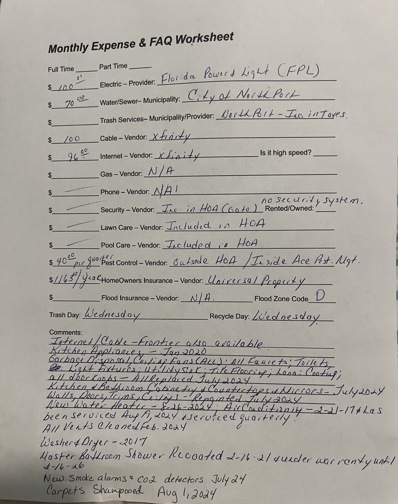 Monthly Expense & FAQ Worksheet
Full Time ____ Part Time ____
$ 100 Electric – Provider: Florida Power & Light (FPL)
$ 70 00 Water/Sewer– Municipality: City of North Port
$ Trash Services– Municipality/Provider: North Port - Inc. in Taxes
$ 100 Cable – Vendor: xfinity
$ 96 00 Internet – Vendor: xfinity Is it high speed? ____
$ Gas – Vendor: N/A
$ Phone – Vendor: N/A
no security system.
$ Security – Vendor: Inc in HOA (Gate) Rented/Owned:
$ Lawn Care – Vendor: Included in HOA
$ Pool Care – Vendor: Included in HOA
$ 40 00 per quarter Pest Control – Vendor: Outside HOA / Inside Ace Pst. Mgt.
$ 1165 /year HomeOwners Insurance – Vendor: Universal Property
$ Flood Insurance – Vendor: N/A Flood Zone Code D
Trash Day: Wednesday Recycle Day: Wednesday
Comments:
Internet/Cable - Frontier also available
Kitchen Appliances - Jan 2020
Garbage Disposal, Ceiling Fans (ALL); All Faucets; Toilets
Light Fixtures, Utility Sink; Tile Flooring; Lanai Coating;
all door knobs - All Replaced July 2024
Kitchen & Bathroom Cabinetry & Countertops & Mirrors - July 2024
Walls, Doors, Trims, Ceilings - Repainted July 2024
New Water Heater - 8-26-2024 Air Conditioning - 2-21-17 & has
been serviced Aug 17, 2024 & serviced quarterly.
All Vents Cleaned Feb. 2024
Washer & Dryer - 2017
Master Bathroom Shower Renovated 2-16-21 & under warranty until
2-16-26
New Smoke alarms & co2 detectors July 24
Carpets Shampooed Aug 1, 2024